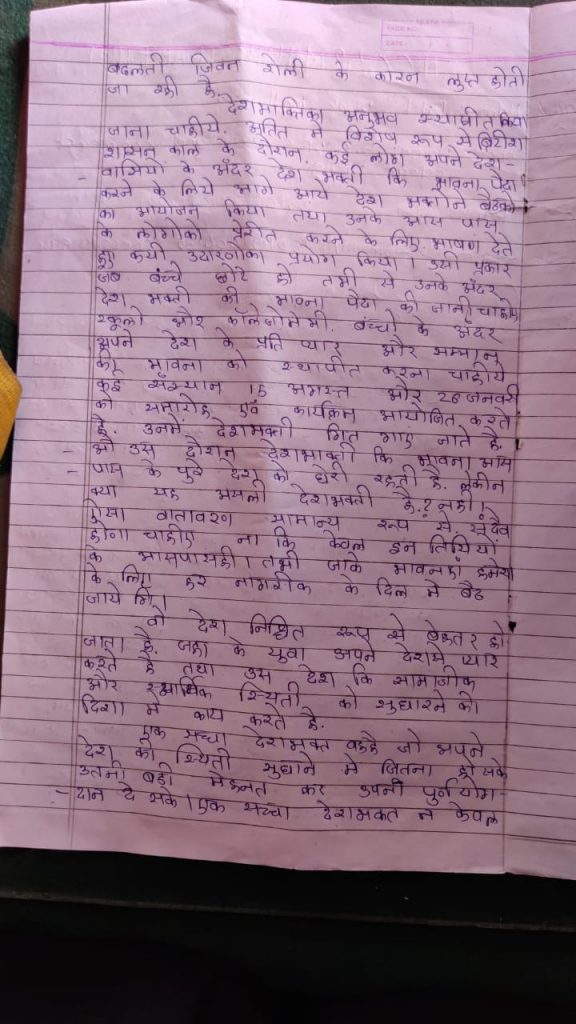 बदलती जिवन शैली के कारन लुप्त होती
जा रही है.
देशभक्तिका अनुभव स्थापीत किया
जाना चाहीये. अतित में विशेष रूप से ब्रिटीश
शासन काल के दौरान, कई लोग अपने देश-
वासियो के अंदर देश भक्ती कि भावना पैदा
करने के लिये आगे आये देश भक्तोने बैठको
का आयोजन किया तथा उनके आस पास
के लोगोको प्रेरीत करने के लिए भाषण देते
हुए कयी उदारणोका प्रयोग किया। उसी प्रकार
जब बच्चे छोटे हो तभी से उनके अंदर
देश भक्ती की भावना पैदा की जानी चाहीए
स्कूलो और कॉलेजोमेभी. बच्चो के अंदर
अपने देश के प्रति प्यार और सम्मान
की भावना को स्थापीत करना चाहीये
कई संस्थान 15 अगस्त और 26 जनवरी
को समारोह एवं कार्यक्रम आयोजित करते
है. उनमें देशभक्ती गित गाए जाते है.
औ उस दौरान देशभक्ती कि भावना आस
- पास के पुरे देश को घेरी रहती है. लेकीन
क्या यह असली देशभक्ती है? नही!
ऐसा वातावरण सामान्य रूप से सदैव
होना चाहीए ना कि केवल इन तिथियो
के आसपासही। तभी जाके भावनाएं हमेशा
के लिए हर नागरीक के दिल में बैठ
जाये गि।
वो देश निश्चित रूप से बेहतर हो
जाता है. जहा के युवा अपने देशसे प्यार
करते है तथा उस देश कि सामाजीक
और आर्थिक स्थिती को सुधारने की
दिशा में काय करते है.
एक सच्चा देशभक्त वहहै जो अपने
देश की स्थिती सुधाने मे जितना हो सके
उतनी बडी मेहनत कर अपनी पुर्ण योग-
- दान दे सके। एक सच्चा देशभक्त न केवल